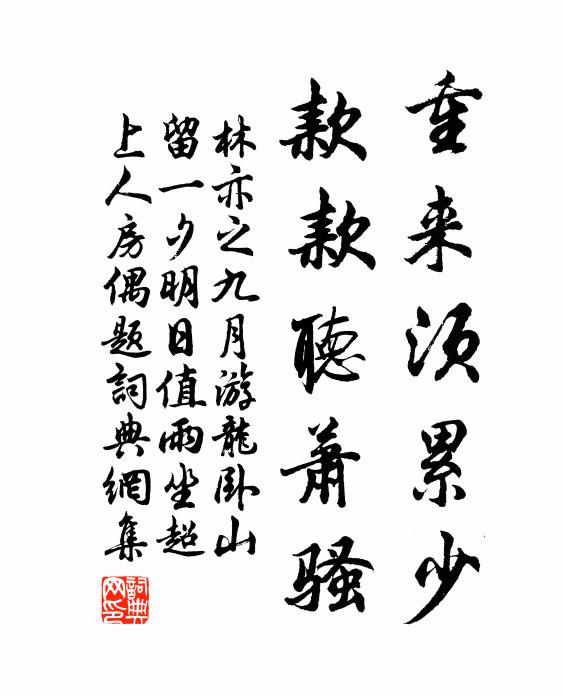 重来须累少
款款聽蕭骚
林亦之九月游龍卧山
留一夕明日值雨坐超
上人房偶題詞典網集
詞典
网印